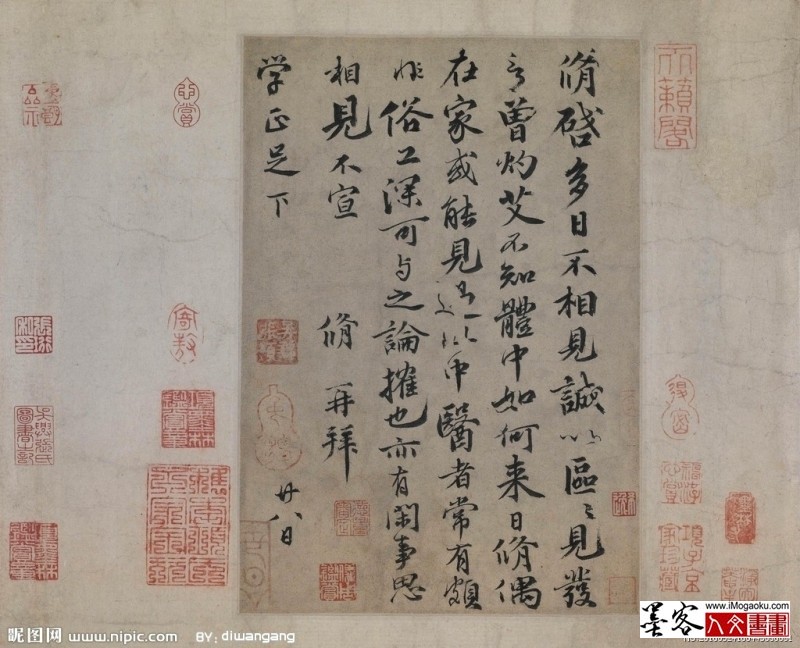 脩啓多日不相見誠以區〻見發
言曾灼艾不知體中如何来日脩偶
在家或能見過此中醫者常有頗
非俗工深可与之論搉也亦有閑事思
相見不宣 脩 再拜
廿八日
学正足下
天籟閣
項子京家珍藏
墨客 www.iMogaoku.com
人文書畫
昵图网 www.nipic.com BY: diwangang